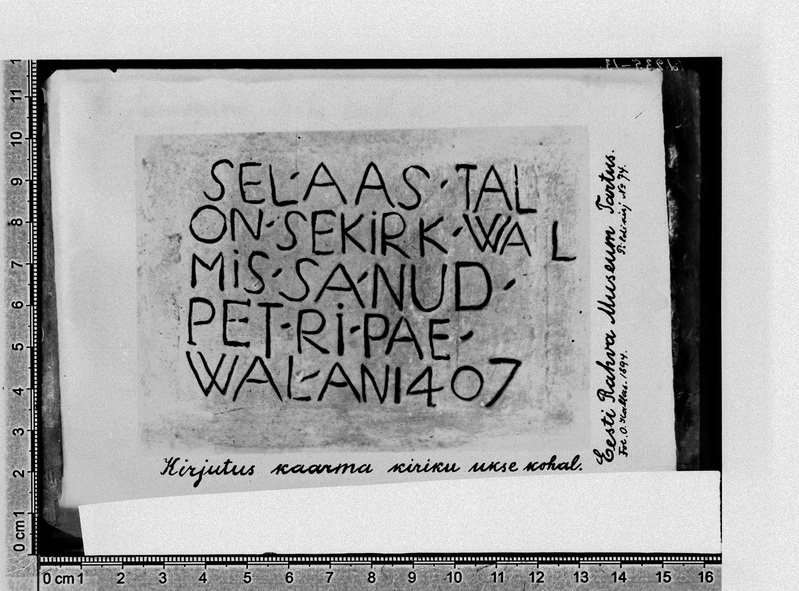 SEL·AAS·TAL
ON·SEKiRK·WAL
MiS·SA·NUD·
PET·Ri·PAE·
WAL·AN1407
Kirjutus kaarma kiriku ukse kohal.
Eesti Rahva Museum Tartus.
Fot. O. Kallas. 1894.
Pildi kirj № 74.
0 cm 1 2 3 4 5 6 7 8 9 10 11
0 cm 1 2 3 4 5 6 7 8 9 10 11 12 13 14 15 16